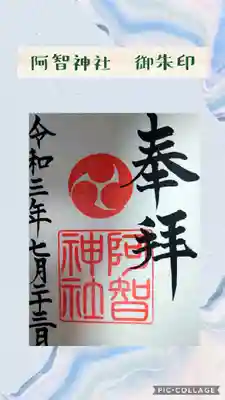 阿智神社　御朱印
奉拝
阿智神社
令和三年七月二十三日
PIC•COLLAGE